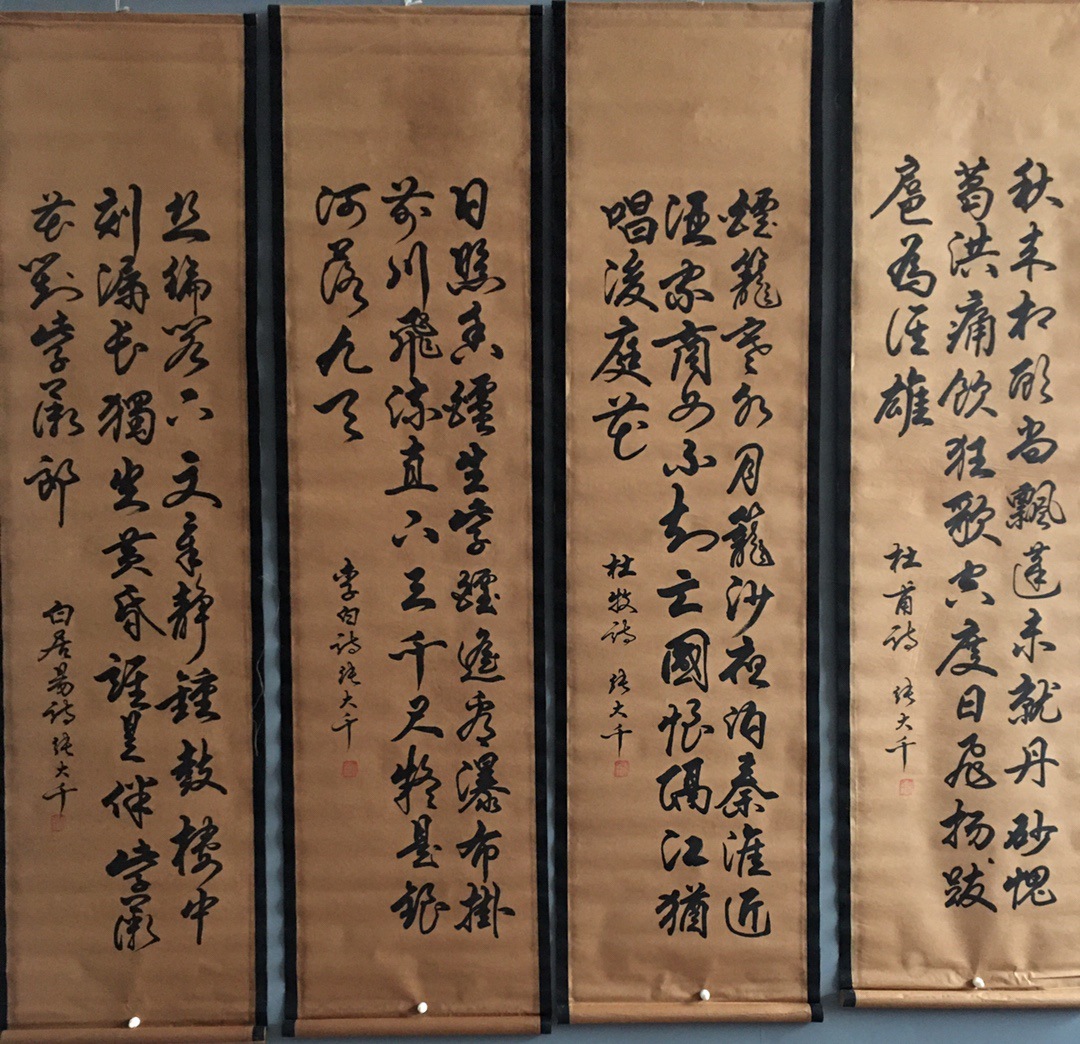 秋来相顾尚飄蓬未就丹砂愧
葛洪痛飲狂歌空度日飛扬跋
扈為谁雄
杜甫詩 張大千
煙籠寒水月籠沙夜泊秦淮近
酒家商女不知亡國恨隔江猶
唱後庭花
杜牧詩 張大千
日照香爐生紫煙遙看瀑布掛
前川飛流直下三千尺疑是銀
河落九天
李白詩張大千
丝綸阁下文章静鐘鼓楼中
刻漏长獨坐黄昏誰是伴紫薇
花對紫薇郎
白居易詩張大千